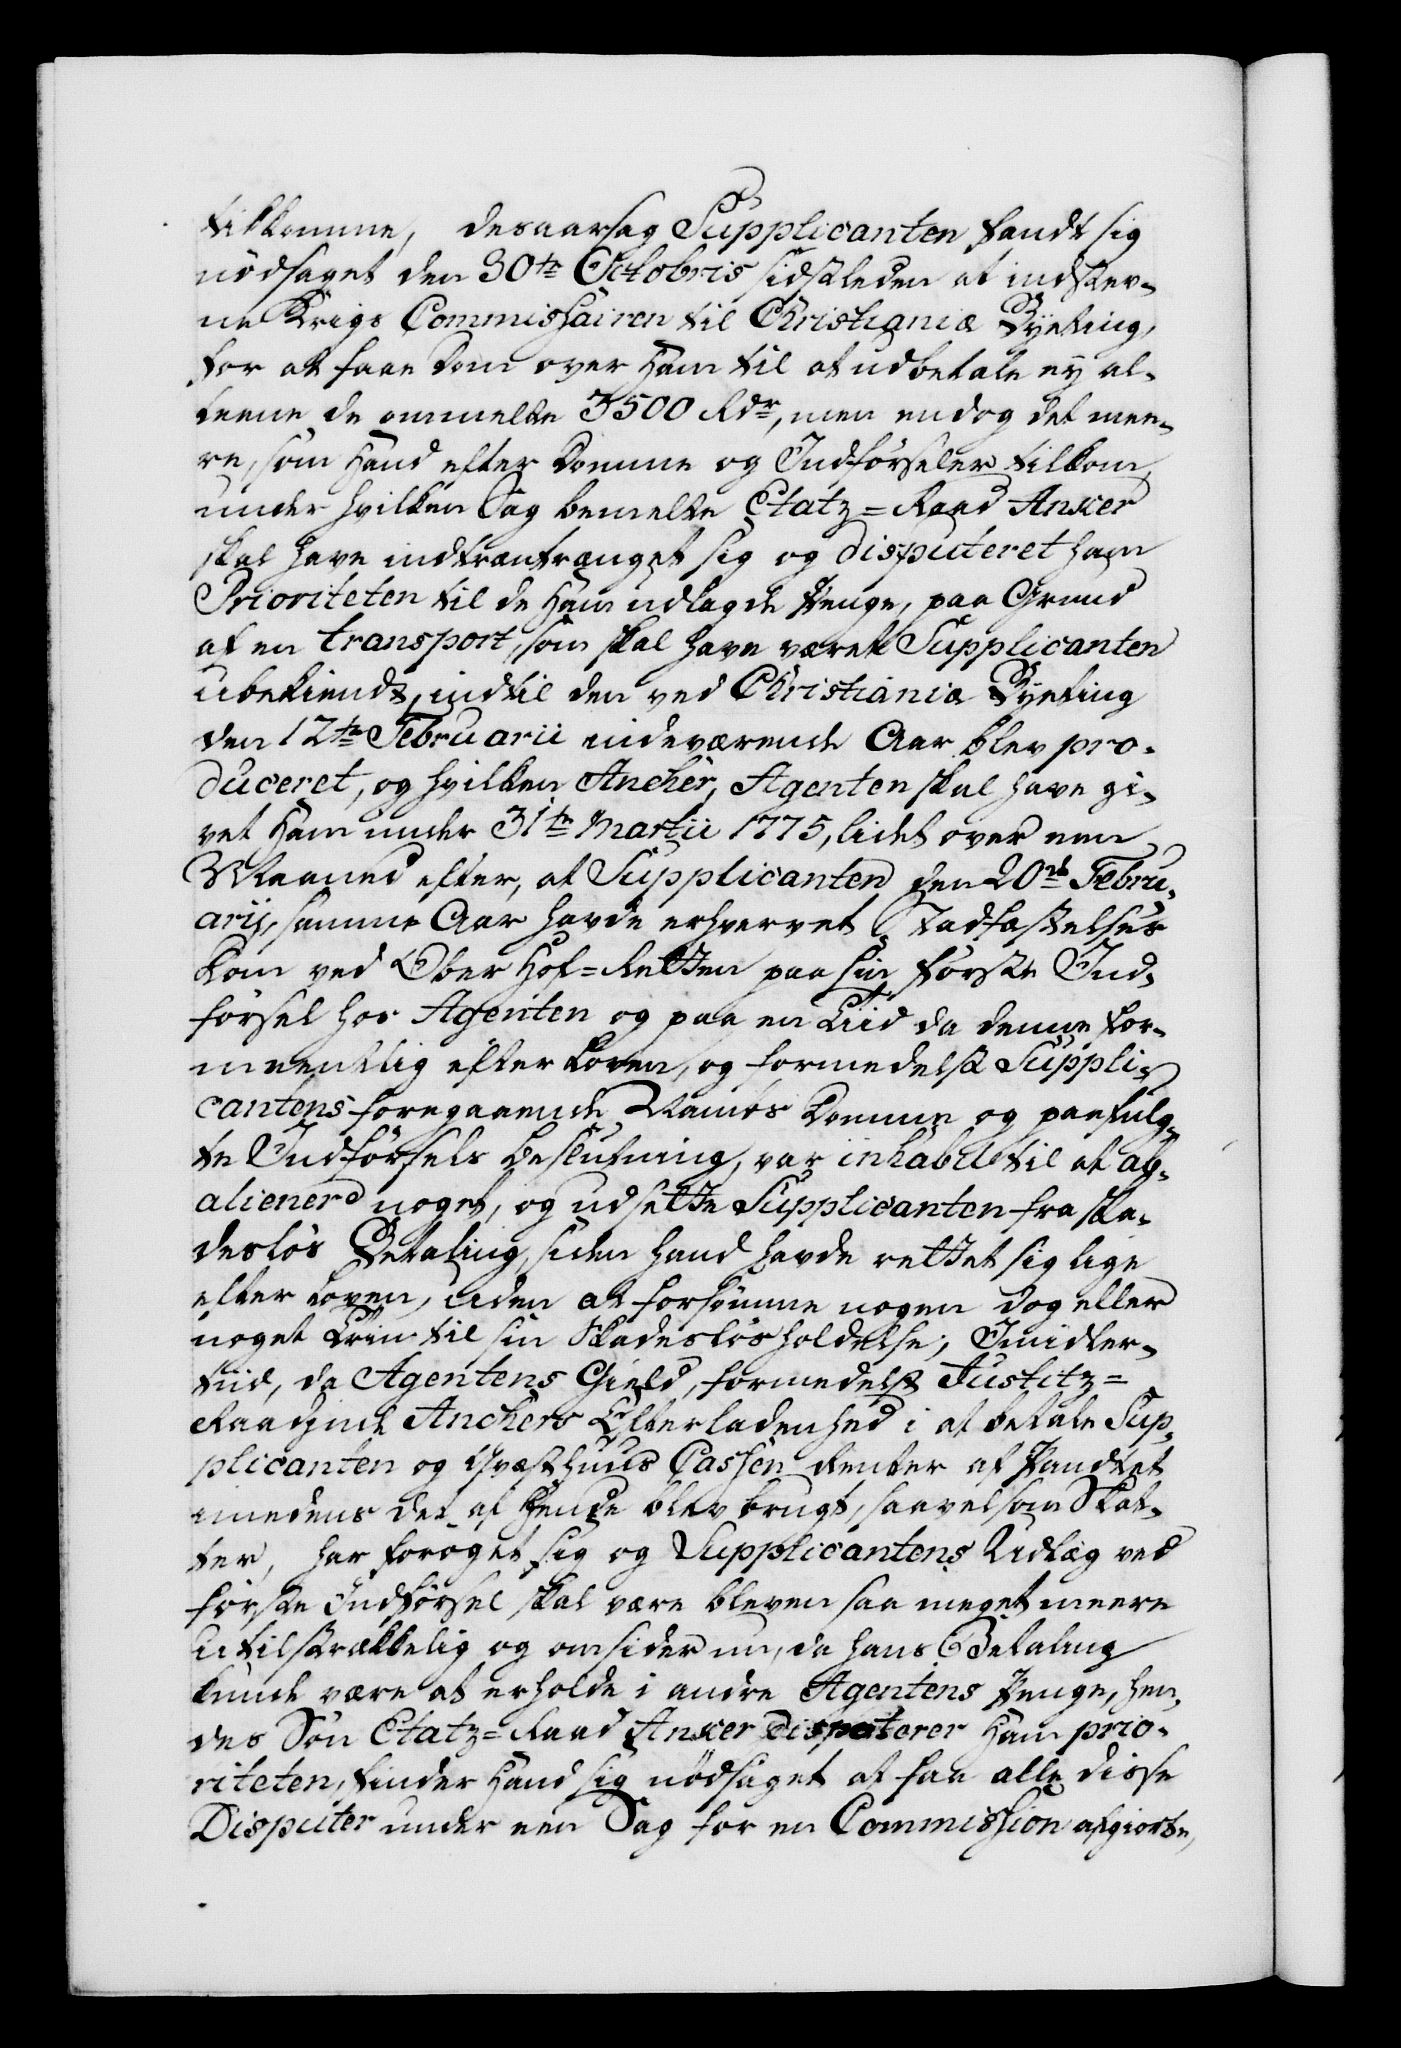 tilkomme, desaarsag Supplicanten fandt sig
nödsaget den 30te Octobris sidstleden at indstev-
ne Krigs Commishairen til Christiania Byeting,
for at faae Dom over Ham til at udbetale ey al-
leene de ommelte 3500 Rdr, men endog det mee-
re, som Hand efter Domme og Indförseler tilkom,
under hvilken Sag bemelte Etatz=Raad Anker
skal have indtræntrænget sig og disputeret ham
Prioriteten til de Ham udlagde Penge, paa Grund
af en transport, som skal have været Supplicanten
ubekiendt, indtil den ved Christiania Byeting
den 12te Februarii indeværende Aar blev pro-
duceret, og hvilken Ancher, Agenten skal have gi-
vet Ham under 31te Martii 1775, lidet over een
Maaned efter, at Supplicanten den 20de Febru-
arij, samme Aar havde erhvervet Stadfæstelses
Dom ved Ober Hof=Retten paa sin förste Ind-
försel hos Agenten og paa en Tiid da denne for-
meentlig efter Loven, og formedelst Suppli-
cantens foregaaende Domme og paafulg-
te Indförsels Beslutning, var inhabil til at ab-
alienere noget, og udsette Supplicanten fra ska-
deslös Betaling, siden Hand havde rettet sig lige
efter Loven, uden at forsömme nogen Dog eller
noget Trin til sin Skadeslösholdelse; Imidler-
tiid, da Agentens Gield, formedelst Justitz=
Raadinde Anchers Efterladenhed i at betale Sup-
plicanten og Qvæsthuus Cassen Renter af Pandtet
imedens det af Hende blev brugt, saavelsom Skat-
ter, har foröget sig og Supplicantens Udlæg ved
förste Indförsel skal være bleven saa meget meere
utilstrækkelig og omsider nu, da hans Betaling
kunde være at erholde i andre Agentens Penge, hen-
des Sön Etatz=Raad Anker Disputerer Ham prio-
riteten, finder Hand sig nödsaget at faa alle disse
Disputer under een Sag for en Commishion afgiorte,